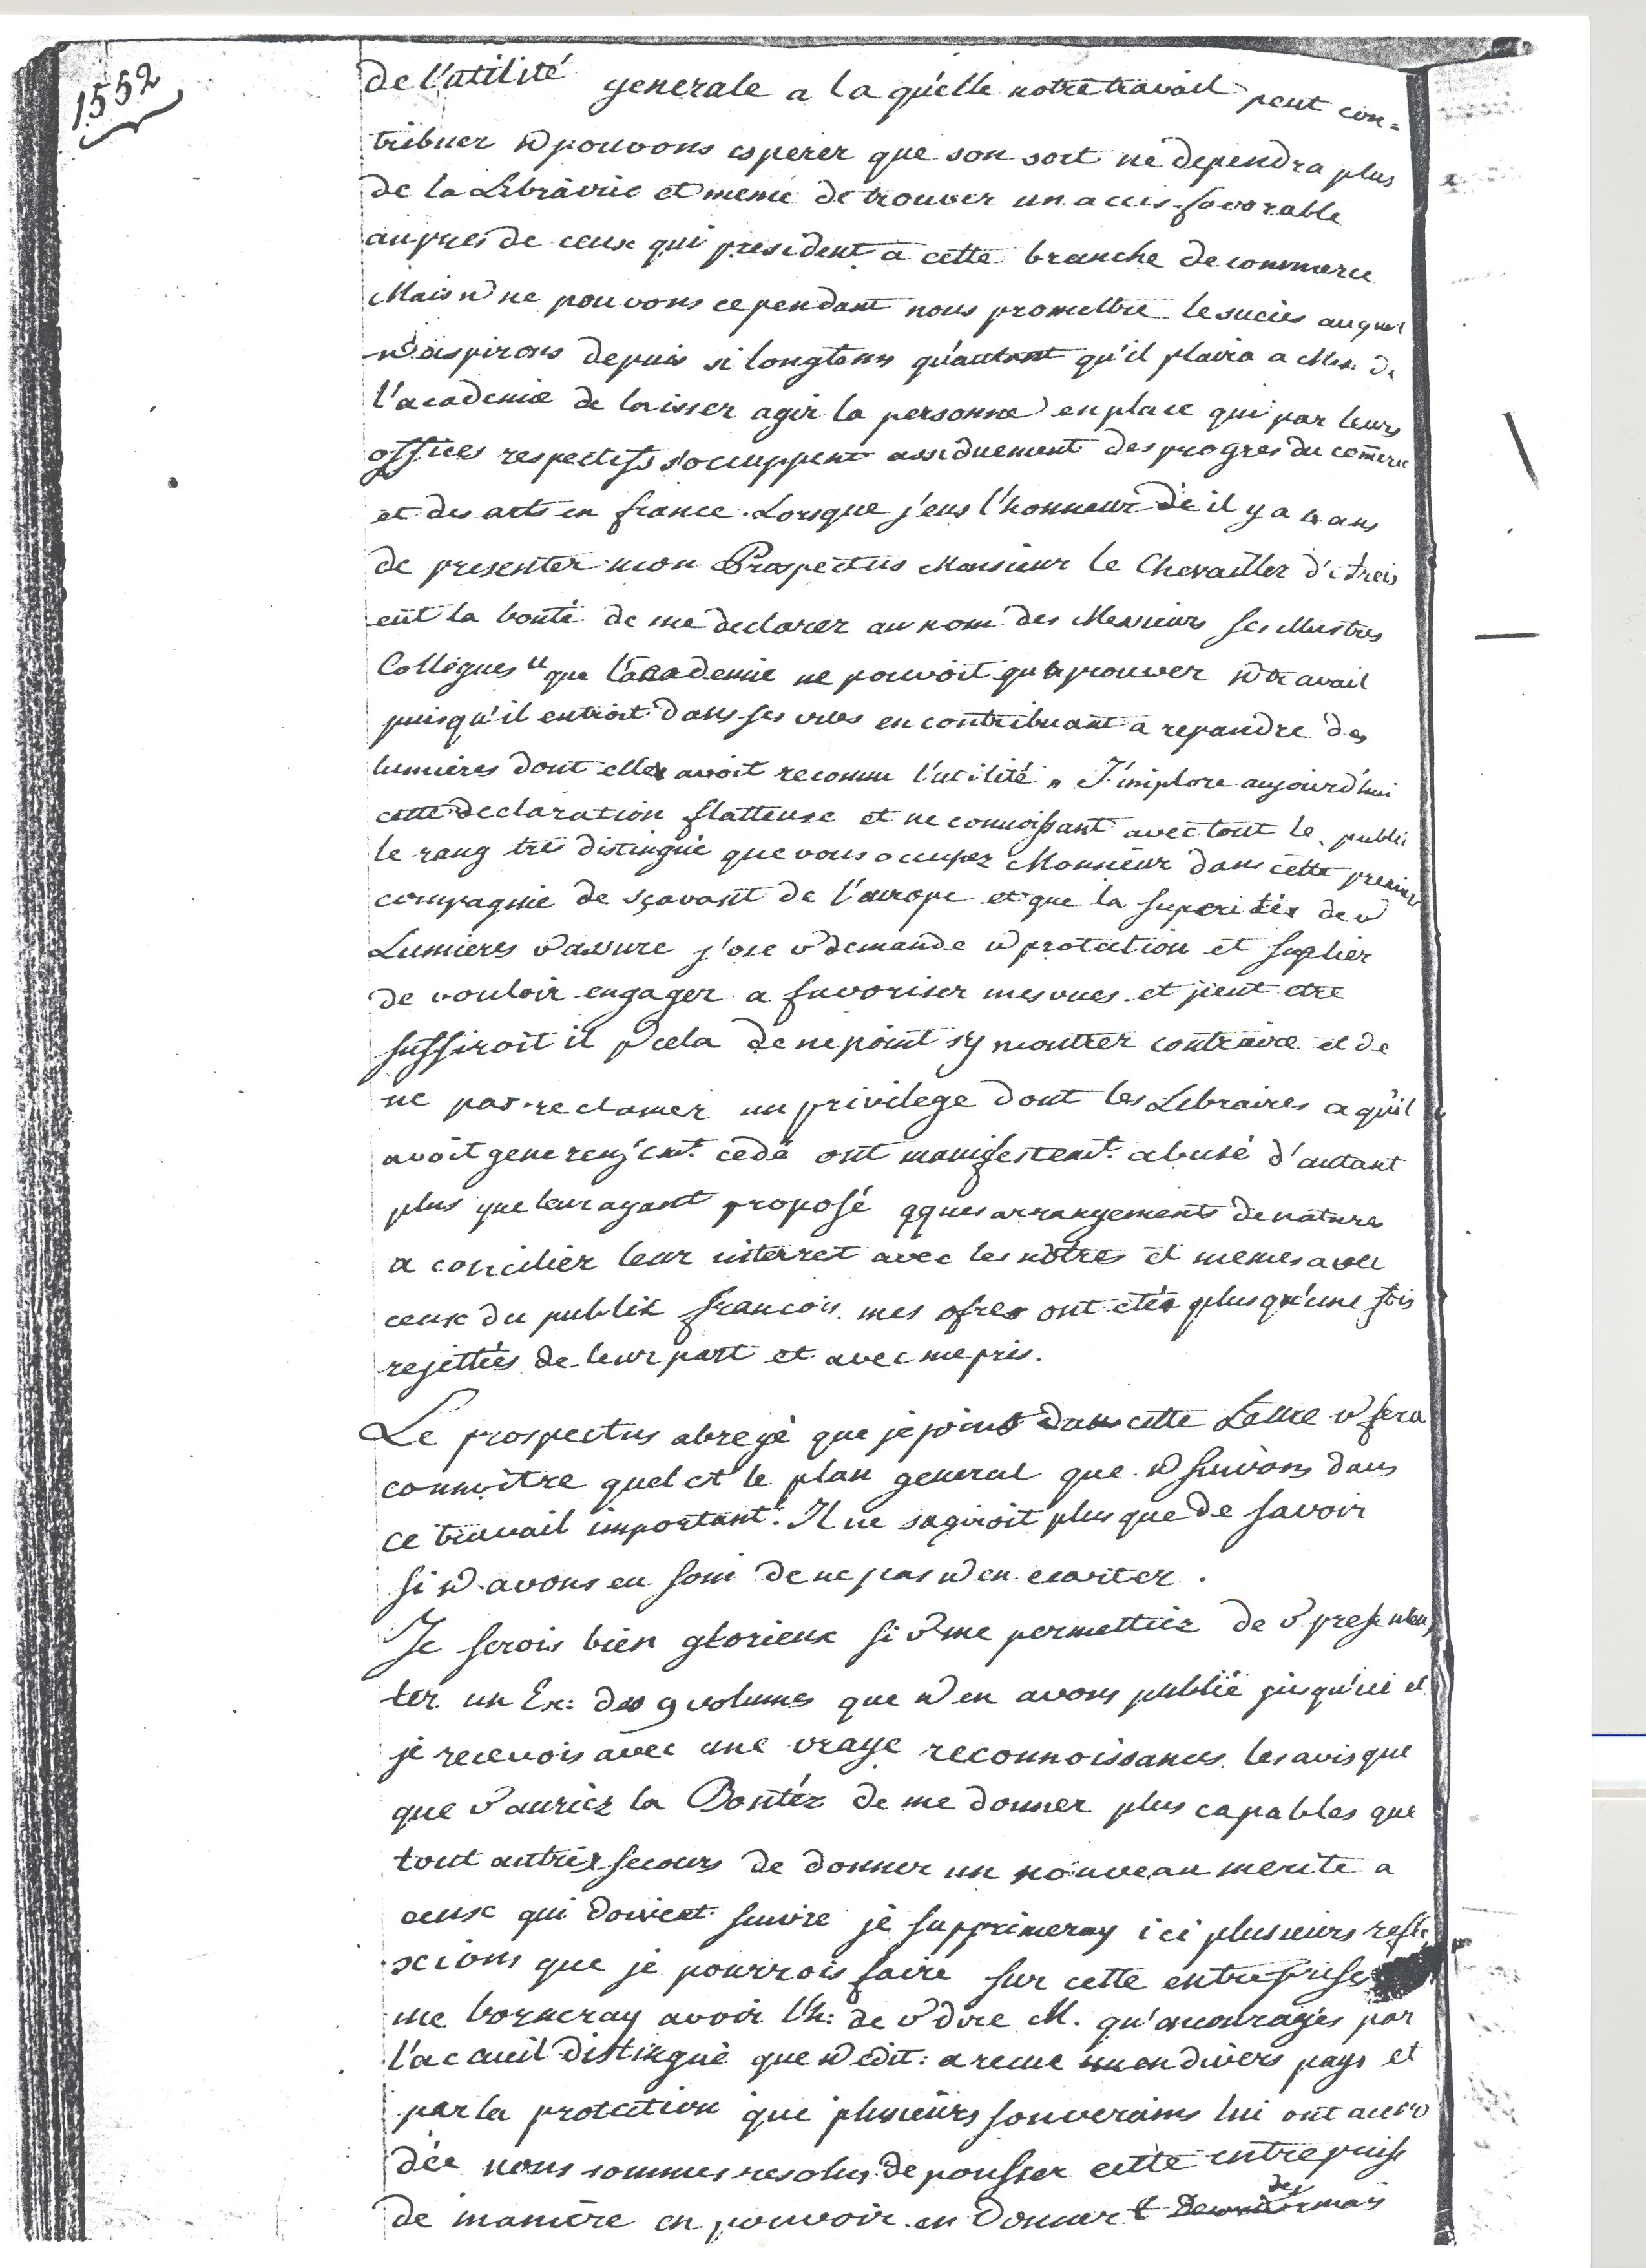 1552
de l'utilité generale a la qu'elle notre travail peut con-
tribuer n͠ pouvons esperer que son sort ne dependra plus
de la Librairie et meme de trouver un acces favorable
aupres de ceux qui president a cette branche de commerce
Mais n͠ ne pouvons cependant nous promettre le succes auquel
n͠ aspirons depuis si longtems qu'autant qu'il plaira a Mrs. de
l'academie de laisser agir la personne en place qui par leurs
offices respectifs s'occuppent assiduement des progres du com̄erce
et des arts en france. Lorsque j'eus l'honneur de il y a 4 ans
de presenter mon Prospectus Monsieur le Chevailler d'
eût la bonté de me declarer au nom des Messieurs ses illustres
Collègues "que l'academie ne pouvoit qu'aprouver n͠ travail
puisqu'il entroit dans ses vues en contribuant a repandre des
lumières dont elle avoit reconnu l'utilité" J'implore aujourd'hui
cette declaration flatteuse et ne connoissant avec tout le public
le rang tres distingué que vous occupez Monsieur dans cette premier
compagnie de sçavant de l'europe et que la de v͠
Lumieres v͠ assure j'ose v͠ demande v͠ protection et suplier
de vouloir engager a favoriser mes vues et peut etre
suffiroit il p͠ cela de ne point s'y montrer contraire et de
ne pas reclamer un privilege dont les Libraires a qu'il
avoit cedé ont manifestemt. abusé d'autant
plus que leur ayant proposé qques arrangements de natures
a concilier leur interret avec les notres et memes avec
ceux du publik francois. mes ofres ont etés plus qu'une fois
rejettées de leur part et avec mepris.
Le prospectus abregé que je joins dans cette Lettre v͠ fera
connoitre quel est le plan general que n͠ suivons dans
ce travail important. Il ne sagiroit plus que de savoir
si n͠ avons eu soin de ne pas n͠ en ecarter.
Je serois bien glorieux si v͠ me permettiez de v͠ presenten
ter un Ex: des 9 volumes que n͠ en avons publié jusqu'ici et
je recevois avec une vraye reconnoissances les avis que
que v͠ auriez la Bontéz de me donner plus capables que
tout autres secours de donner un nouveau merite a
ceux qui doivent suivre je supprimeray ici plusieurs refle
xions que je pourrois faire sur cette entreprise
me borneray avoir l'h: de v͠ dire M. qu'encouragés par
l'accueil distingué que n͠ edit: a recue en divers pays et
par la protection que plusieurs souverains lui ont accor
dée nous sommes resolus de pousser cette entreprise
de manière en pouvoir en donner des